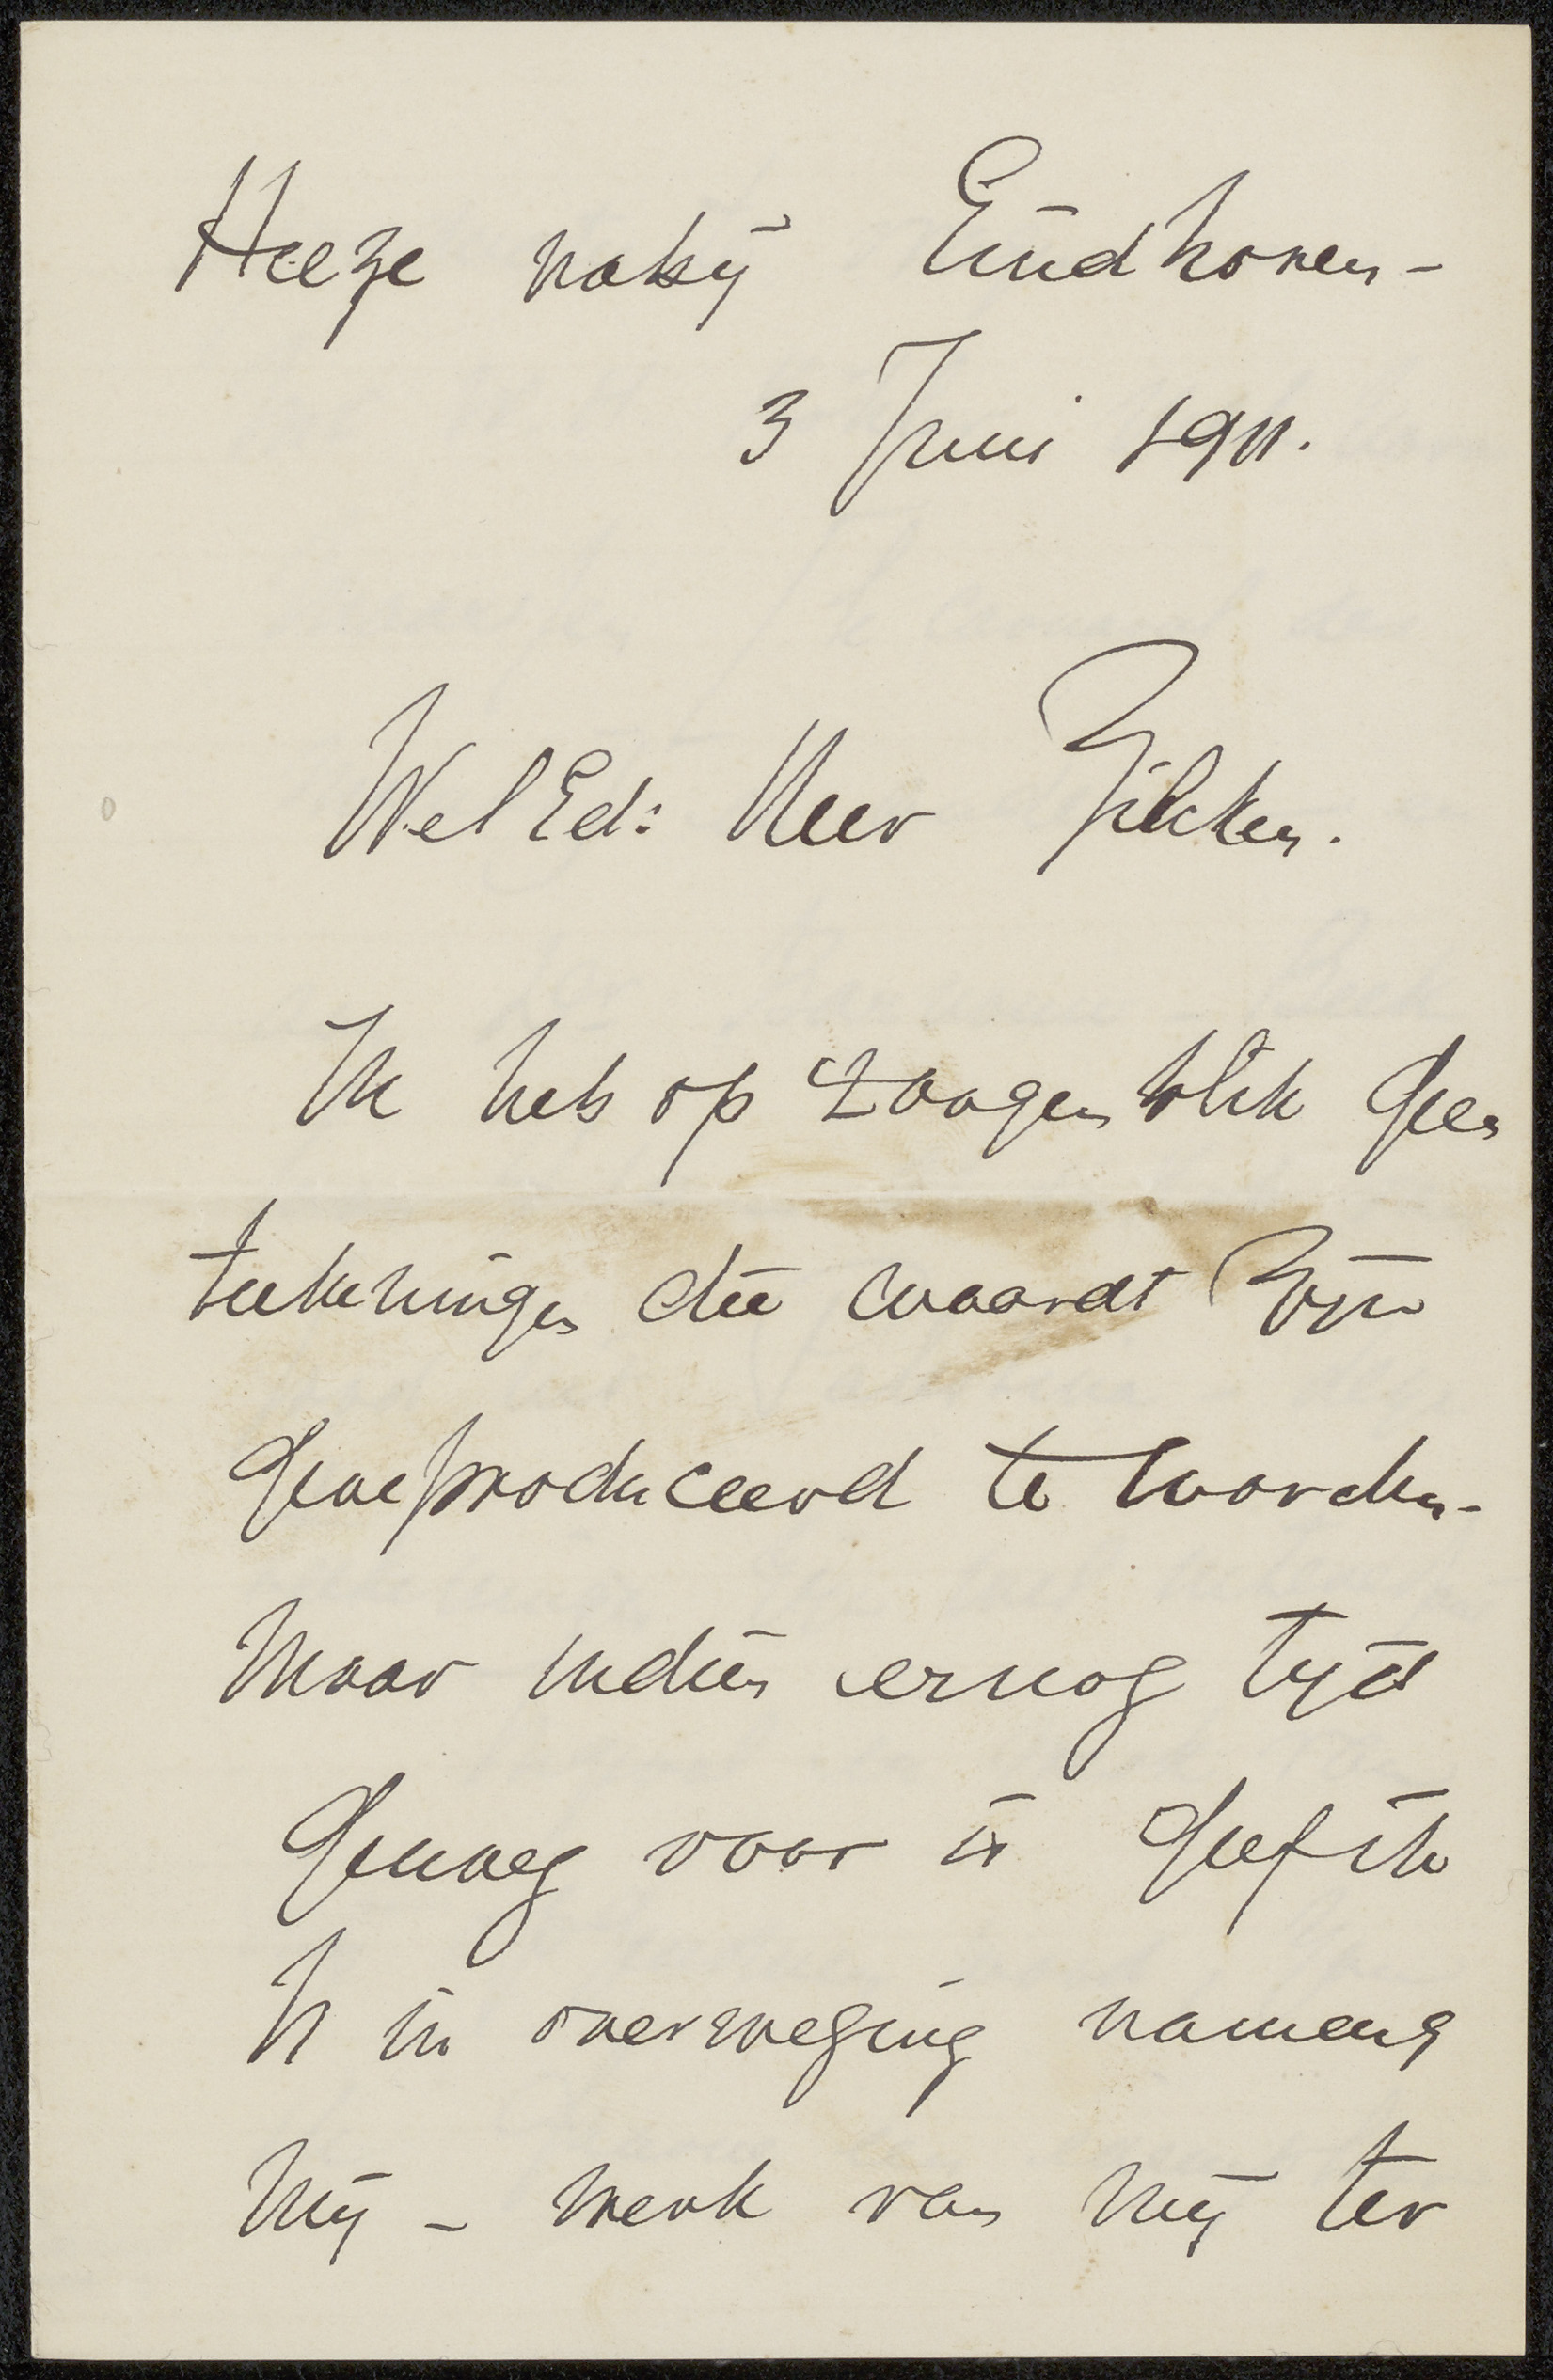 Heeze nabij Eindhoven -
3 Juni 1911.
WelEd: Heer Zilcken.
Ik heb op 't oogenblik geen
teekeningen die waardt zijn
gereproduceerd te worden -
Maar indien er nog tijd
genoeg voor is geef ik
U in overweging namens
mij - werk van mij ter